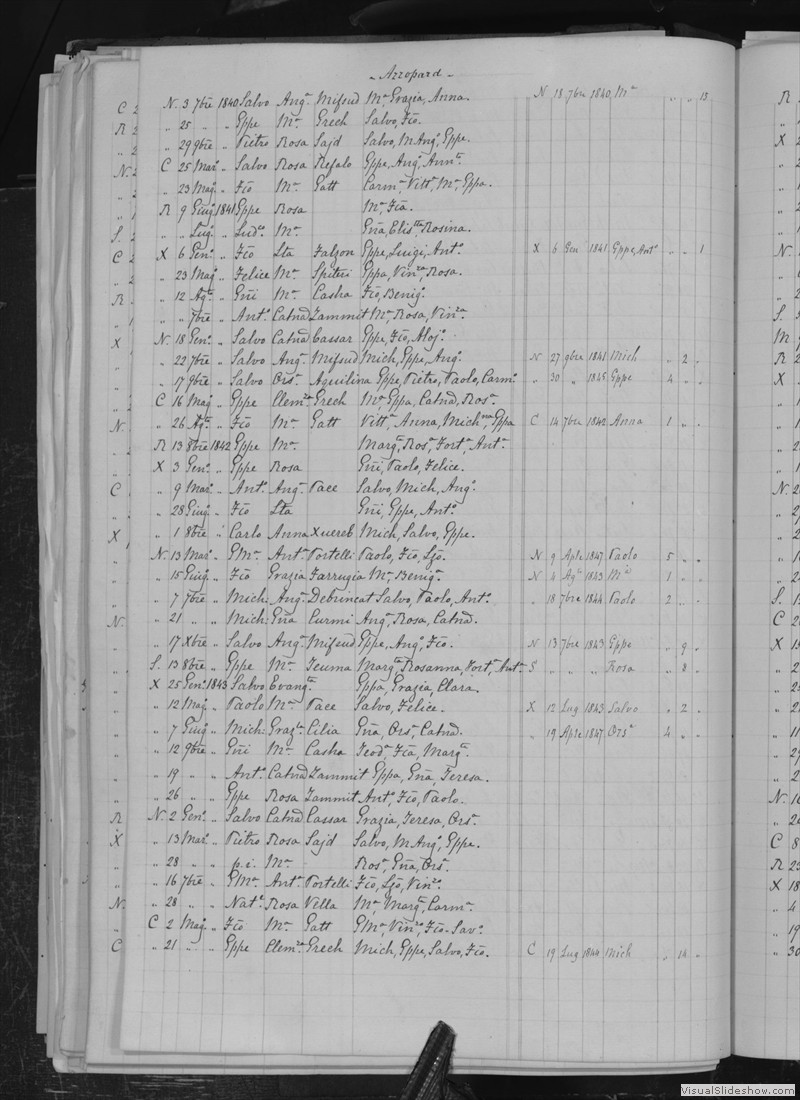 Azzopard
N. 3 7bre 1840 Salvo Angª Mifsud Mª Grazia, Anna. N 18 7bre 1840 Mª " " 13
" 25 " " Gppe Mª Grech Salvo, Fco.
" 29 9bre " Pietro Rosa Sajd Salvo, M Angº, Gppe.
C 25 Marº " Salvo Rosa Refalo Gppe, Angº, Annta.
" 23 Magº " Fco Mª Gatt Carmª, Vittª, Mª, Gppa.
R 9 Giugº 1841 Gppe Rosa Mª, Fca.
" " Lugº " Ludco Mª Gña, Elistta, Rosina.
X 6 Genº " Fco Lta Falzon Gppe, Luigi, Antº. X 6 Gen 1841 Gppe, Antº " " 1
" 23 Magº " Felice Mª Spiteri Gppa, Vinza, Rosa.
" 12 Agto " Gñi Mª Casha Fco, Benigº.
" " 7bre " Antº Catnª Zammit Mª, Rosa, Vinza.
N. 18 Genº " Salvo Catnª Cassar Gppe, Fco, Alojº.
" 22 7bre " Salvo Angª Mifsud Mich, Gppe, Angº. N 27 9bre 1841 Mich " 2 "
" 17 9bre " Salvo Orsª Aquilina Gppe, Pietro, Paolo, Carmº. " 30 " 1845 Gppe 4 " "
C 16 Magº " Gppe Clemza Grech Mª, Gppa, Catnª, Rosª.
" 26 Agto " Fco Mª Gatt Vittª, Anna, Michna, Gppa C 14 7bre 1842 Anna 1 " "
R 13 8bre 1842 Gppe Mª Margta, Rosª, Fortª, Antª.
X 3 Genº " Gppe Rosa Gñi, Paolo, Felice.
" 9 Marº " Antº Angª Pace Salvo, Mich, Angº.
" 28 Giugº " Fco Lta Gñi, Gppe, Antº.
" 1 8bre " Carlo Anna Xuereb Mich, Salvo, Gppe.
N. 13 Marº " GMª Antª Portelli Paolo, Fco, Ljo. N 9 Aple 1847 Paolo 5 " "
" 15 Giugº " Fco Grazia Farrugia Mª, Benigª. N 4 Agto 1843 Mª 1 " "
" 7 7bre " Mich. Angª Debrincat Salvo, Paolo, Antº. " 18 7bre 1844 Paolo 2 " "
" 21 " " Mich. Gña Curmi Angª, Rosa, Catnª.
" 17 Xbre " Salvo Angª Mifsud Gppe, Angº, Fco. N 13 7bre 1843 Gppe " 9 "
S. 13 8bre " Gppe Mª Teuma Margta, Rosanna, Fortª, Antª. S " " " Rosa " 8 "
X 25 Genº 1843 Salvo Evangta Gppa, Grazia, Clara.
" 12 Magº " Paolo Mª Pace Salvo, Felice. X 12 Lug 1843 Salvo " 2 "
" 7 Giugº " Mich. Grazla Cilia Gña, Orsª, Catnª. " 19 Aple 1847 Orsª 4 " "
" 12 9bre " Gñi Mª Casha Teodª, Fca, Margta.
" 19 " " Antº Catnª Zammit Gppa, Gña Teresa.
" 26 " " Gppe Rosa Zammit Antº, Fco, Paolo.
N. 2 Genº " Salvo Catnª Cassar Grazia, Teresa, Orsª.
" 13 Marº " Pietro Rosa Sajd Salvo, M Angº, Gppe.
" 28 " " p.i. Mª Rosª, Gña, Orsª.
" 16 7bre " GMª Antª Portelli Fco, Ljo, Vinzo.
" 28 " " Natle Rosa Vella Mª, Margta, Carmª.
C 2 Magº " Fco Mª Gatt GMª, Vinzo, Fco. Savº.
" 21 " " Gppe Clemza Grech Mich, Gppe, Salvo, Fco. C 19 Lug 1844 Mich " 14 "
VisualSlideshow.com